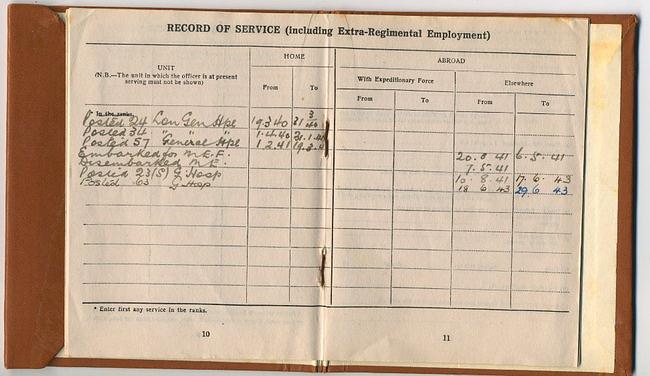 RECORD OF SERVICE (including Extra-Regimental Employment)
UNIT
(N.B.—The unit in which the officer is at present
serving must not be shown)
HOME
From To
ABROAD
With Expeditionary Force
From To
Elsewhere
From To
* In the ranks.
Posted 24 Lon Gen Hpl 19.3.40 31 3 40
Posted 34 " " 1.4.40 31.1.
Posted 57 General Hpl 1 2 41 19.3.4
Embarked for M.E.F. 20. 41 6.5.41
Disembarked M.E. 7.5.41
Posted 23(S) G Hosp 10. 8. 41 17. 6. 43
Posted 63 G Hosp 18 6 43 29.6 43
* Enter first any service in the ranks.
10
11